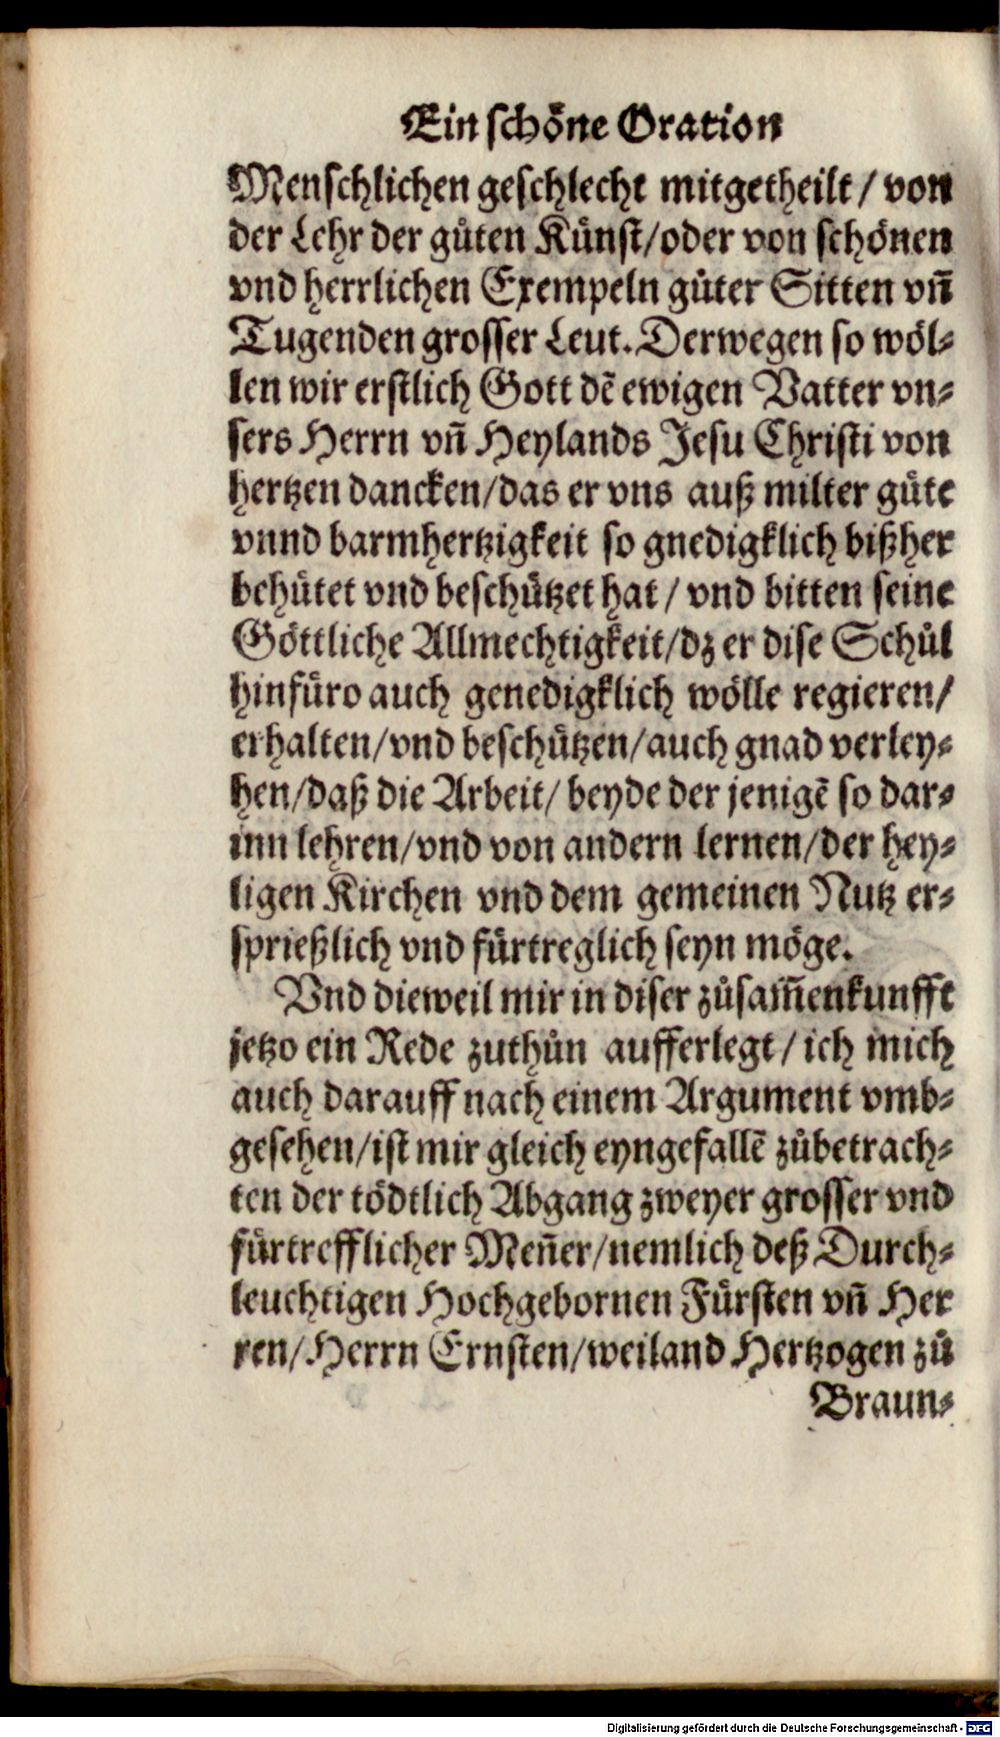 Ein schöne Oration
Menschlichen geschlecht mitgetheilt / von
der Lehr der gůten Künst/oder von schönen
vnd herrlichen Exempeln gůter Sitten vñ
Tugenden grosser Leut. Derwegen so wöl-
len wir erstlich Gott dẽ ewigen Vatter vn-
sers Herrn vñ Heylands Jesu Christi von
hertzen dancken/das er vns auß milter güte
vnnd barmhertzigkeit so gnedigklich bißher
behütet vnd beschützet hat / vnd bitten seine
Göttliche Allmechtigkeit/dz er dise Schůl
hinfüro auch genedigklich wölle regieren/
erhalten/vnd beschützen/auch gnad verley-
hen/daß die Arbeit/ beyde der jenigẽ so dar-
inn lehren/vnd von andern lernen/der hey-
ligen Kirchen vnd dem gemeinen Nutz er-
sprießlich vnd fürtreglich seyn möge.
Vnd dieweil mir in diser zůsam̃enkunfft
jetzo ein Rede zuthůn aufferlegt / ich mich
auch darauff nach einem Argument vmb-
gesehen/ist mir gleich eyngefallẽ zůbetrach-
ten der tödtlich Abgang zweyer grosser vnd
fürtrefflicher Meñer/nemlich deß Durch-
leuchtigen Hochgebornen Fürsten vñ Her
ren/Herrn Ernsten/weiland Hertzogen zů
Braun-
Digitalisierung gefördert durch die Deutsche Forschungsgemeinschaft - DFG